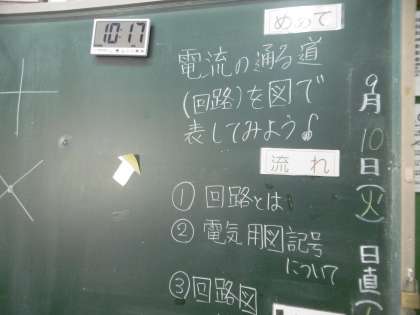 10:17
めあて
電流の通る道
(回路)を図で
表してみよう♪
流れ
① 回路とは
② 電気用図記号
について
③ 回路図
9月10日(火)
日直